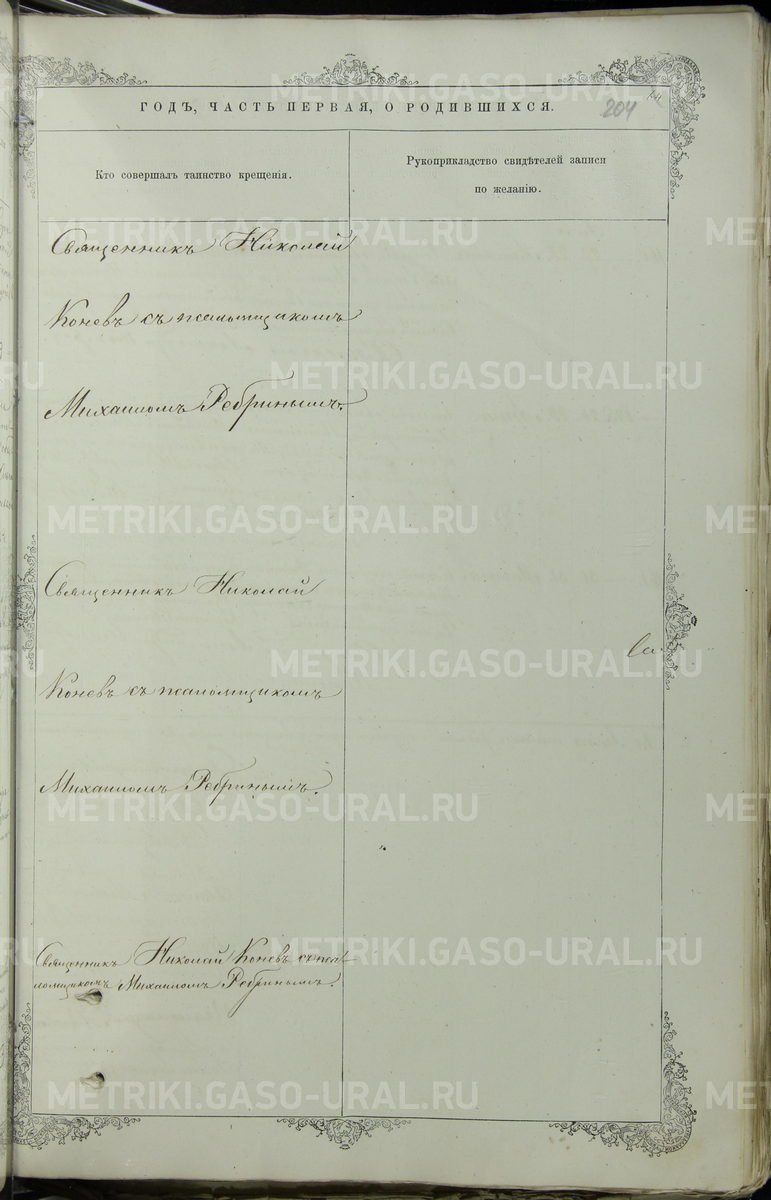 METRIKI.GASO-URAL.RU
204
ГОДЪ, ЧАСТЬ ПЕРВАЯ, О РОДИВШИХСЯ.
Кто совершалъ таинство крещенія.
Рукоприкладство свидѣтелей записи
по желанію.
Священникъ Николай
Коневъ съ псаломщикомъ
Михаиломъ Ребринымъ.
METRIKI.GASO-URAL.RU
Священникъ Николай
Коневъ съ псаломщикомъ
Михаиломъ Ребринымъ.
METRIKI.GASO-URAL.RU
Священникъ Николай Коневъ съ пса
ломщикомъ Михаиломъ Ребринымъ.
METRIKI.GASO-URAL.RU